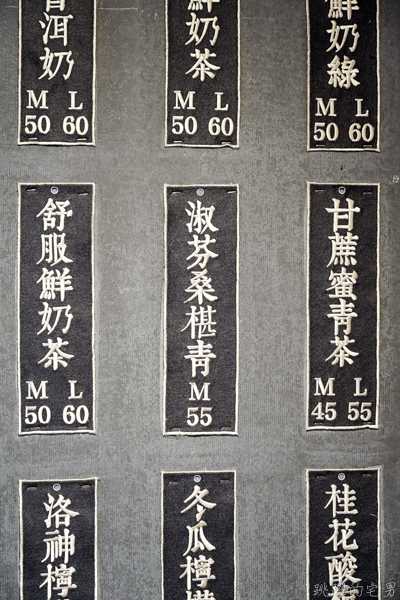 洱奶
M L
50 60
鮮奶茶
M L
50 60
鮮奶綠
M L
50 60
舒服鮮奶茶
M L
50 60
淑芬桑椹青
M
55
甘蔗蜜青茶
M L
45 55
洛神檸
冬瓜檸檬
桂花酸
跳躍的宅男